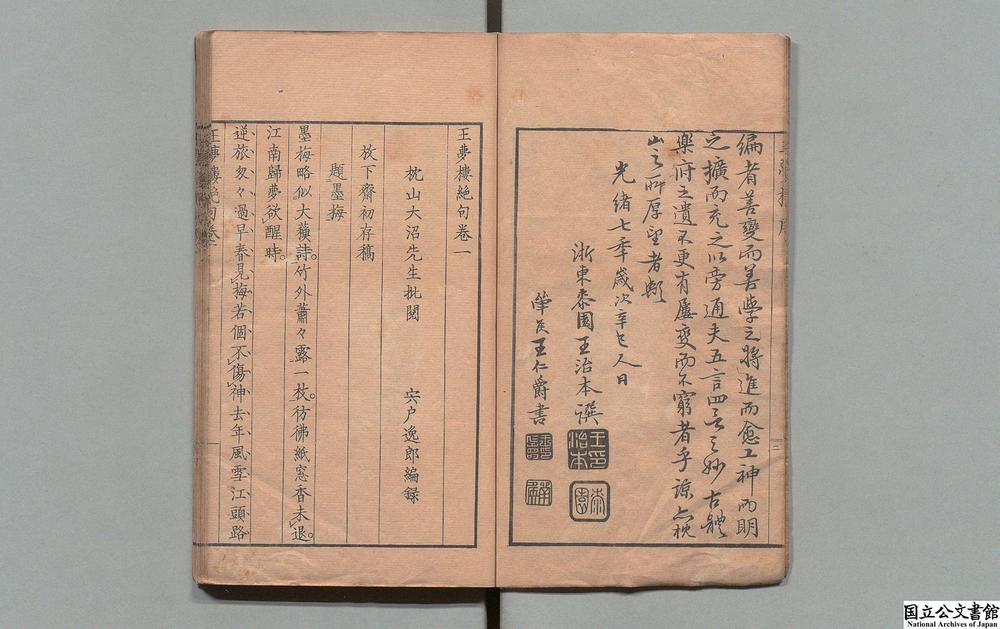 編者善變而善學之將進而愈工神而明
之擴而充之以旁通夫五言四言之妙古體
樂府之遺不更有屢變而不窮者乎諒亦枕
山之所厚望者歟
光緒七年歲次辛巳人日
浙東桼園王治本譔
王仁爵書
王印治本
桼園
王夢樓絕句卷一
枕山大沼先生批閱 宍戶逸郎編錄
放下齋初存稿
題墨梅
墨梅略似大蘓詩竹外蕭々露一枝彷彿紙窓香未退
江南歸夢欲醒時
逆旅匆々過早春見梅若個不傷神去年風雪江頭路
王夢樓絕句卷一
国立公文書館
National Archives of Japan